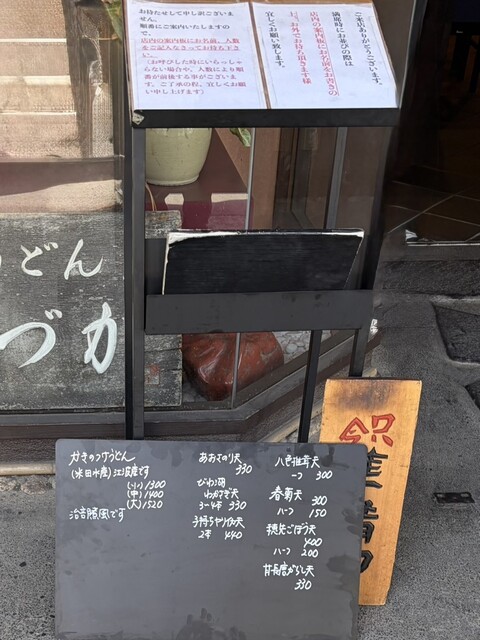 ご来店ありがとうございます。
満席時にお並びの際は
店内の案内板にお名前をお書きの
上、お外でお待ち頂きます様
宜しくお願い致します。
お待たせして申し訳ございま
せん。
順番にご案内いたしますの
で、
店内の案内板にお名前、人数
をご記入なさってお待ち下さ
い。
(お呼びした時にいらっしゃ
らない場合や、人数により順
番が前後する事がございま
す。ご了承の程、宜しくお願
い申し上げます)
うどん
づか
準備中
かきのつけうどん
(米田水産)江坂産です
(小)1300
(中)1400
(大)1520
あおさのり天
330
びわこ湖
わかさぎ天
3〜4本 330
子持ちやりいか天
2本 440
八色椎茸天
一つ 300
春菊天 300
ハーフ 150
穂先ごぼう天
400
ハーフ 200
甘長唐がらし天
330